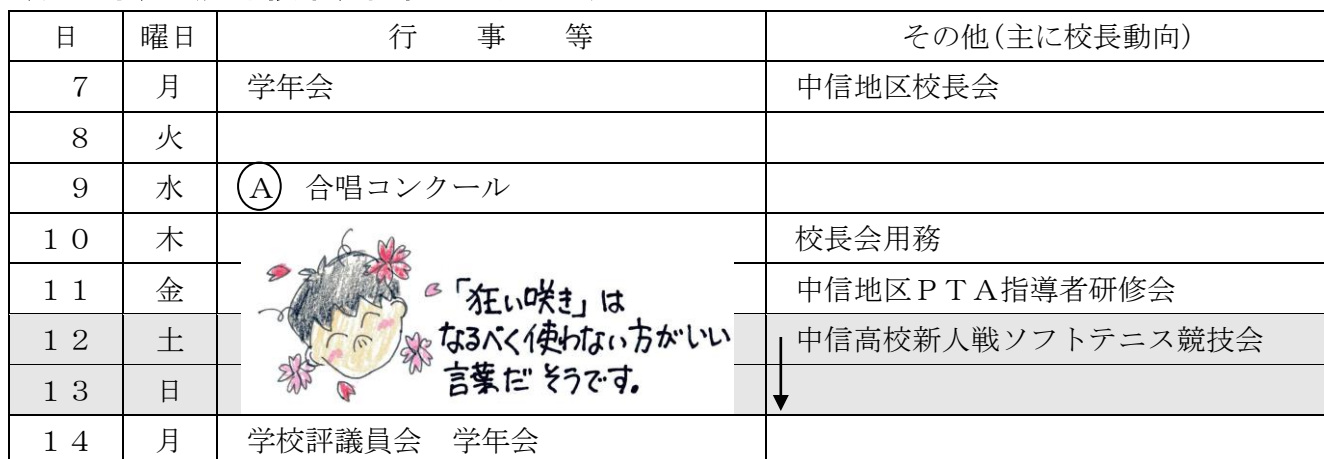 日 曜日 行　事　等 その他(主に校長動向)
７ 月 学年会 中信地区校長会
８ 火
９ 水 Ⓐ 合唱コンクール
１０ 木 校長会用務
１１ 金 中信地区ＰＴＡ指導者研修会
１２ 土 中信高校新人戦ソフトテニス競技会
１３ 日
「狂い咲き」は
なるべく使わない方がいい
言葉だ そうです。
１４ 月 学校評議員会　学年会